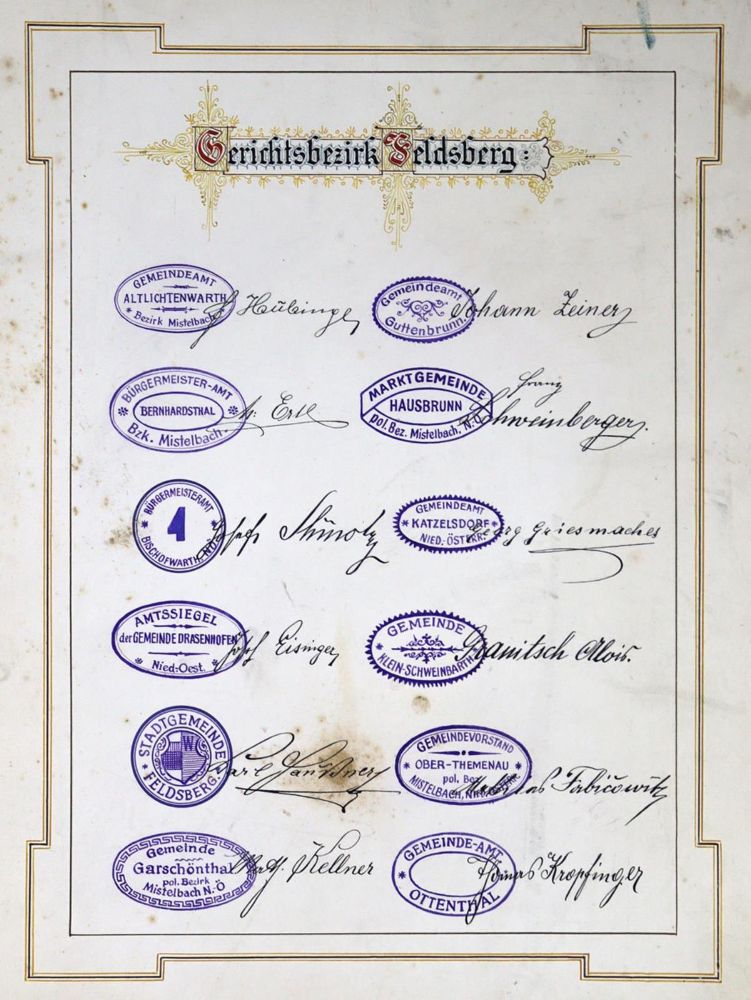 Gerichtsbezirk Feldsberg:
GEMEINDEAMT
ALTLICHTENWARTH
Bezirk Mistelbach
Gemeindeamt
Guttenbrunn.
Johann Zeiner
BÜRGERMEISTER-AMT
BERNHARDSTHAL
Bzk. Mistelbach.
MARKTGEMEINDE
HAUSBRUNN
pol. Bez. Mistelbach, N.Ö.
Franz
Schweinberger.
BÜRGERMEISTERAMT
1
BISCHOFWARTH, N.Ö.
Josef
GEMEINDEAMT
KATZELSDORF
NIED. ÖSTERR.
Georg Griesmacher
AMTSSIEGEL
der GEMEINDE DRASENHOFEN
Nied-Oest.
Josef Eisinger
GEMEINDE
KLEIN-SCHWEINBARTH
Alois.
STADTGEMEINDE
W
FELDSBERG
Karl
GEMEINDEVORSTAND
OBER-THEMENAU
pol. Bez.
MISTELBACH,
Gemeinde
Garschönthal
pol. Bezirk
Mistelbach N.Ö
Math. Kellner
GEMEINDE-AMT
OTTENTHAL
Kropfinger